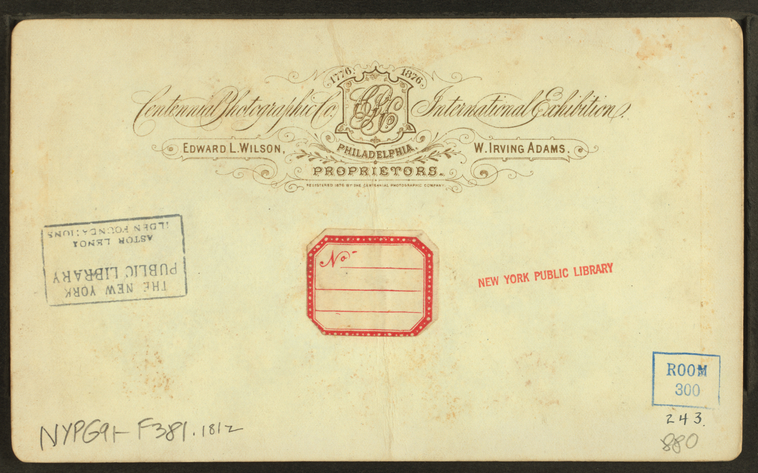 1776. 1876.
Centennial Photographic Co. International Exhibition.
CPC
EDWARD L. WILSON, PHILADELPHIA. W. IRVING ADAMS.
PROPRIETORS.
REGISTERED 1876 BY THE CENTENNIAL PHOTOGRAPHIC COMPANY
THE NEW YORK
PUBLIC LIBRARY
ASTOR LENOX
TILDEN FOUNDATIONS
No-
NEW YORK PUBLIC LIBRARY
ROOM
300
243.
880
NYPG91- F381.1812